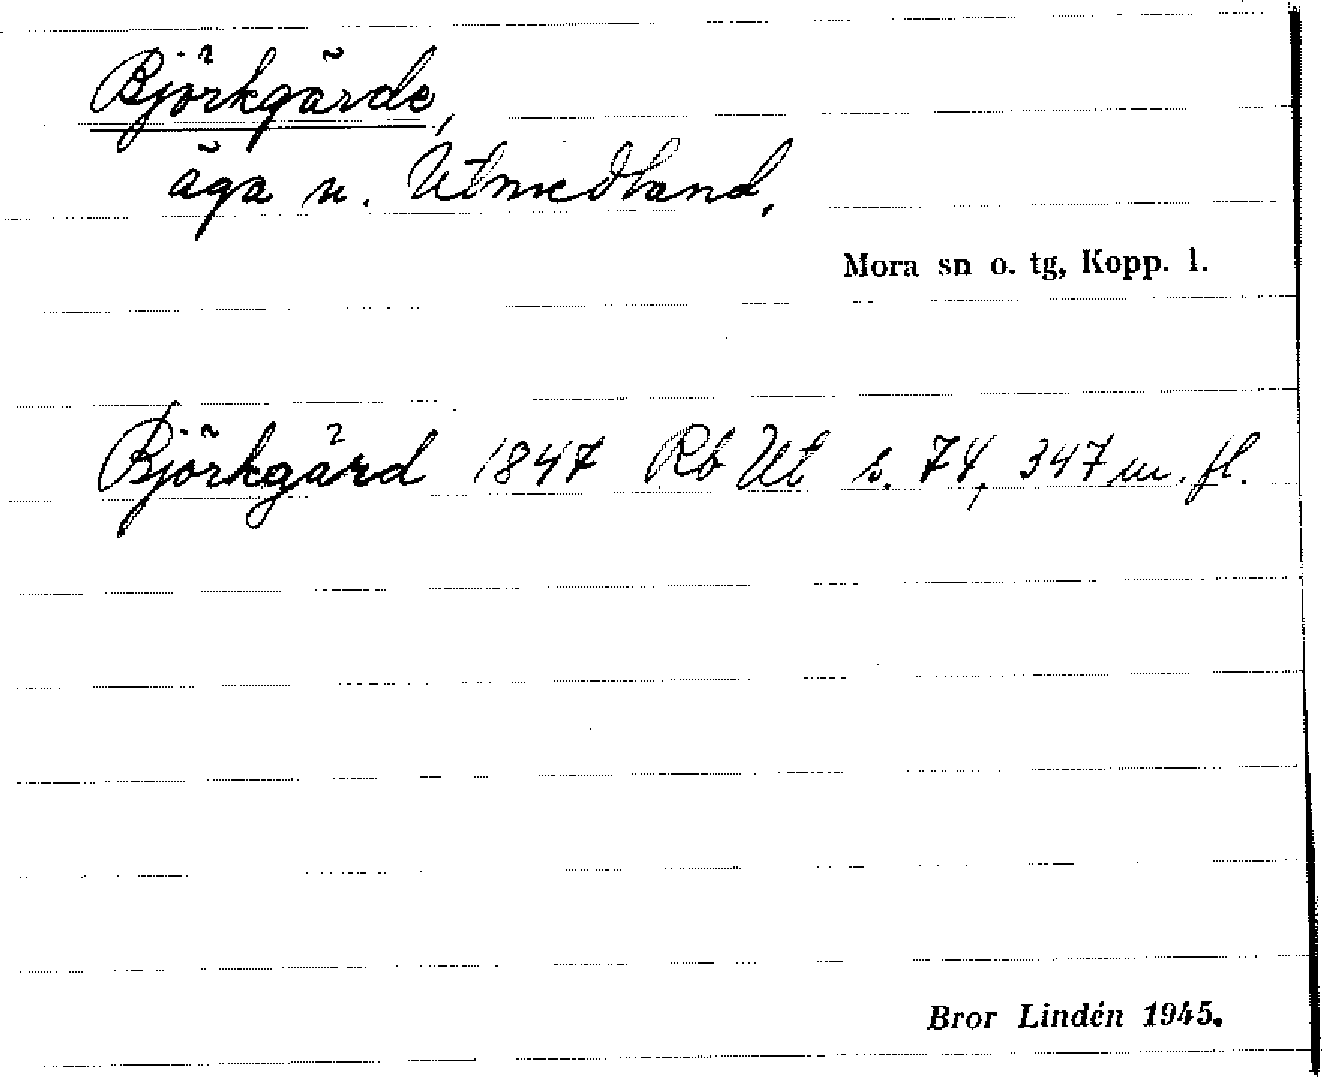 Björkgärde,
äga u. Utmedland,
Mora sn o. tg, Kopp. l.
Björkgård 1847 Rb Ut s. 74, 347 m. fl.
Bror Lindén 1945.